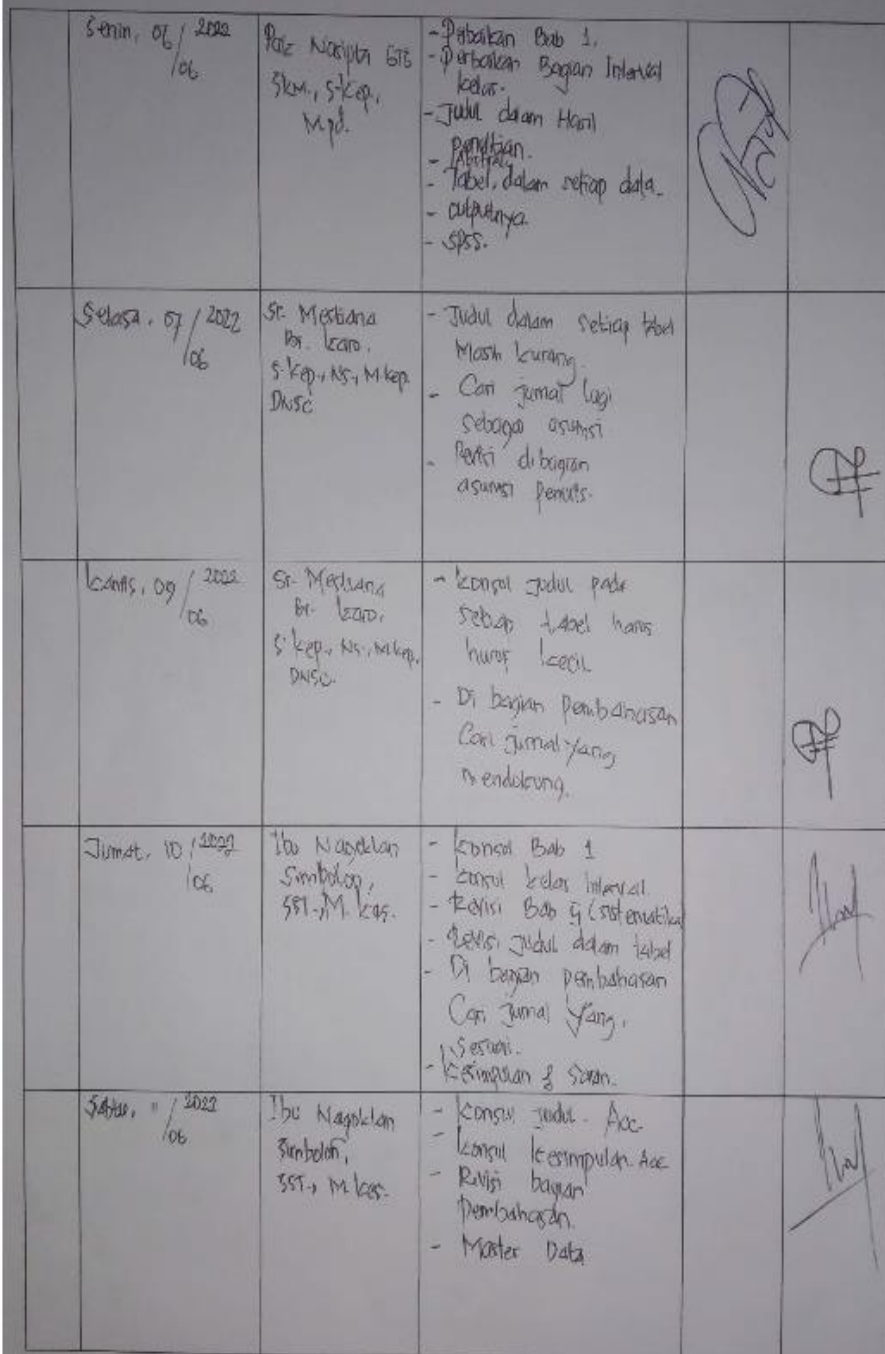 Senin, 06/06 2022
SKM., S.Kep.,
Mpd.
- Perbaikan Bab 1.
- Perbaikan Bagian Interval
kelas.
- Judul dalam Hasil
penelitian.
- Abstrak
- Tabel, dalam setiap data
- outputnya.
- SPSS.
Selasa, 07/06 2022
Sr. Mestiana
Br. Karo,
S.Kep., Ns., M.Kep.
DNSC
- Judul dalam setiap tabel
Masih kurang.
- Cari jurnal lagi
sebagai asumsi
- Revisi dibagian
asumsi Penulis.
Kamis, 09/06 2022
Sr. Mestiana
Br. Karo,
S.Kep., Ns., M.Kep.,
DNSC.
- Konsul judul pada
setiap tabel harus
huruf kecil
- Di bagian Pembahasan
Cari jurnal yang
mendukung.
Jumat, 10/06 2022
Ibu Nagoklan
Simbolon,
SST., M.Kes.
- Konsul Bab 1
- Konsul kelas Interval
- Revisi Bab 5 (sistematika)
- Revisi judul dalam tabel
- Di bagian pembahasan
Cari jurnal yang,
Sesuai.
- Kesimpulan & Saran.
Sabtu, 11/06 2022
Ibu Nagoklan
Simbolon,
SST., M.Kes.
- Konsul judul. Acc
- Konsul kesimpulan. Acc
- Revisi bagian
Pembahasan.
- Master Data